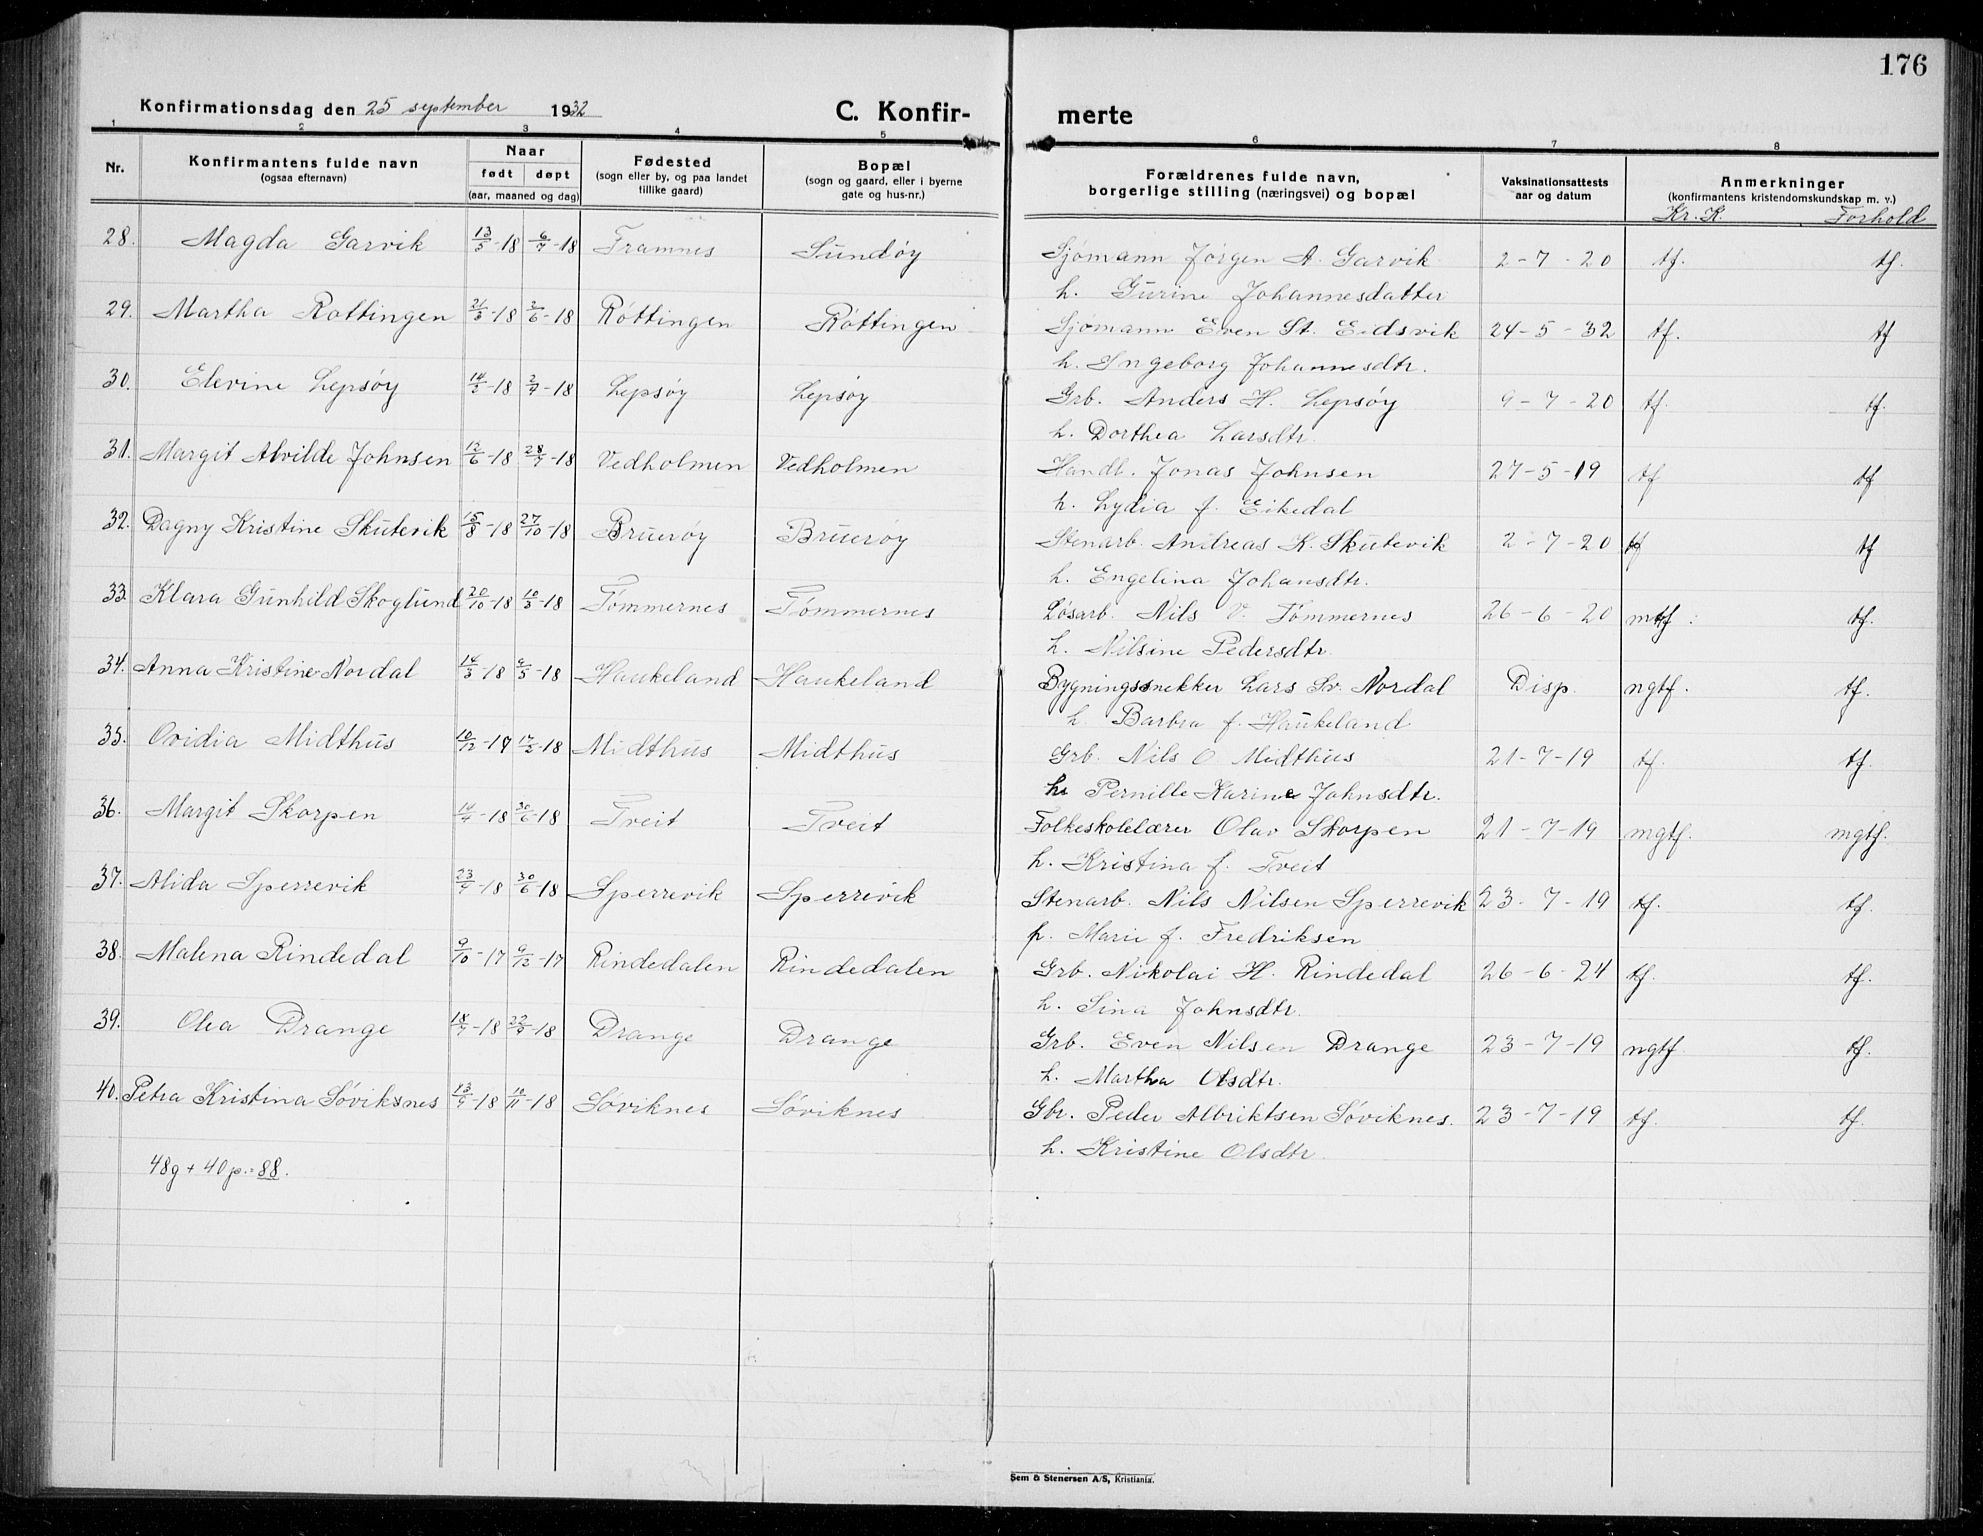 176
Konfirmationsdag den 25 september 1932 C. Konfir- merte
1 2 3 4 5 6 7 8
Nr. Konfirmantens fulde navn (ogsaa efternavn) Naar født døpt (aar, maaned og dag) Fødested (sogn eller by, og paa landet tillike gaard) Bopæl (sogn og gaard, eller i byerne gate og hus-nr.) Forældrenes fulde navn, borgerlige stilling (næringsvei) og bopæl Vaksinationsattests aar og datum Anmerkninger (konfirmantens kristendomskundskap m. v.)
Kr. K. Forhold
28. Magda Garvik 13/5-18 6/7-18 Framnes Sundøy Sjømann Jørgen A. Garvik 2-7-20 tf. tf.
h. Gurine Johannesdatter
29. Martha Røttingen 21/3-18 2/6-18 Røttingen Røttingen Sjømann Even St. Eidsvik 24-5-32 tf. tf
h. Ingeborg Johannesdtr.
30. Elevine Lepsøy 14/3-18 Lepsøy Lepsøy Grb. Anders H. Lepsøy 9-7-20 tf. tf.
h. Dorthea Larsdtr.
31. Margit Alvilde Johnsen 12/6-18 28/7-18 Vedholmen Vedholmen Handl. Jonas Johnsen 27-5-19 tf tf
h. Lydia f. Eikedal
32. Dagny Kristine Skutevik 15/8-18 27/10-18 Bruerøy Bruerøy Stenarb. Andreas K. Skutevik 2-7-20 tf tf
h. Engelina Johansdtr.
33. Klara Gunhild Skoglund 20/10-18 10/3-18 Tømmernes Tømmernes Løsarb. Nils V. Tømmernes 26-6-20 mtf. tf.
h. Nilsine Pedersdtr.
34. Anna Kristine Nordal 14/3-18 9/5-18 Haukeland Haukeland Bygningssnekker Lars Sv. Nordal Disp. ngtf. tf.
h. Barbra f. Haukeland
35. Ovidia Midthus 10/12-17 17/3-18 Midthus Midthus Grb. Nils O. Midthus 21-7-19 tf. tf.
h. Pernille Karine Johnsdtr.
36. Margit Skorpen 14/4-18 30/6-18 Tveit Tveit Folkeskolelærer Olav Skorpen 21-7-19 mgtf. mgtf.
h. Kristina f. Tveit
37. Alida Sperrevik 23/4-18 30/6-18 Sperrevik Sperrevik Stenarb. Nils Nilsen Sperrevik 23-7-19 tf. tf.
p. Marie f. Fredriksen
38. Malena Rindedal 9/10-17 9/12-17 Rindedalen Rindedalen Grb. Nikolai H. Rindedal 26-6-24 tf. tf.
h. Sina Johnsdtr.
39. Olea Drange 18/7-18 22/9-18 Drange Drange Grb. Even Nilsen Drange 23-7-19 ngtf. tf.
h. Martha Olsdtr.
40. Petra Kristina Søviksnes 13/9-18 10/11-18 Søviknes Søviknes Gbr. Peder Albriktsen Søviknes. 23-7-19 tf. tf.
h. Kristine Olsdtr.
48g + 40p. = 88.
Sem & Stenersen A/S, Kristiania.